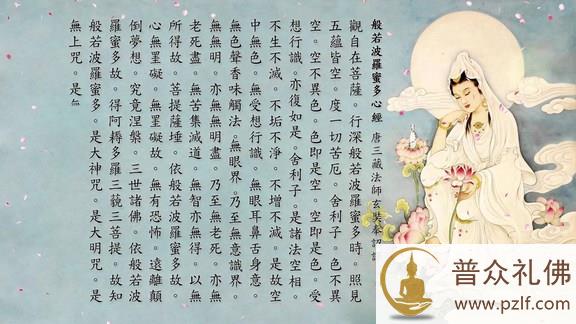 般若波羅蜜多心經 唐三藏法師玄奘奉詔譯
觀自在菩薩。行深般若波羅蜜多時。照見
五蘊皆空。度一切苦厄。舍利子。色不異
空。空不異色。色即是空。空即是色。受
想行識。亦復如是。舍利子。是諸法空相。
不生不滅。不垢不淨。不增不減。是故空
中無色。無受想行識。無眼耳鼻舌身意。
無色聲香味觸法。無眼界。乃至無意識界。
無無明。亦無無明盡。乃至無老死。亦無
老死盡。無苦集滅道。無智亦無得。以無
所得故。菩提薩埵。依般若波羅蜜多故。
心無罣礙。無罣礙故。無有恐怖。遠離顛
倒夢想。究竟涅槃。三世諸佛。依般若波
羅蜜多故。得阿耨多羅三藐三菩提。故知
般若波羅蜜多。是大神咒。是大明咒。是
無上咒。是
普众礼佛
www.pzlf.com